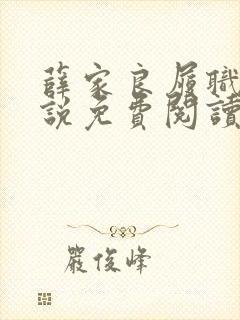 薛家良履職
說免費閱讀
嚴俊峰